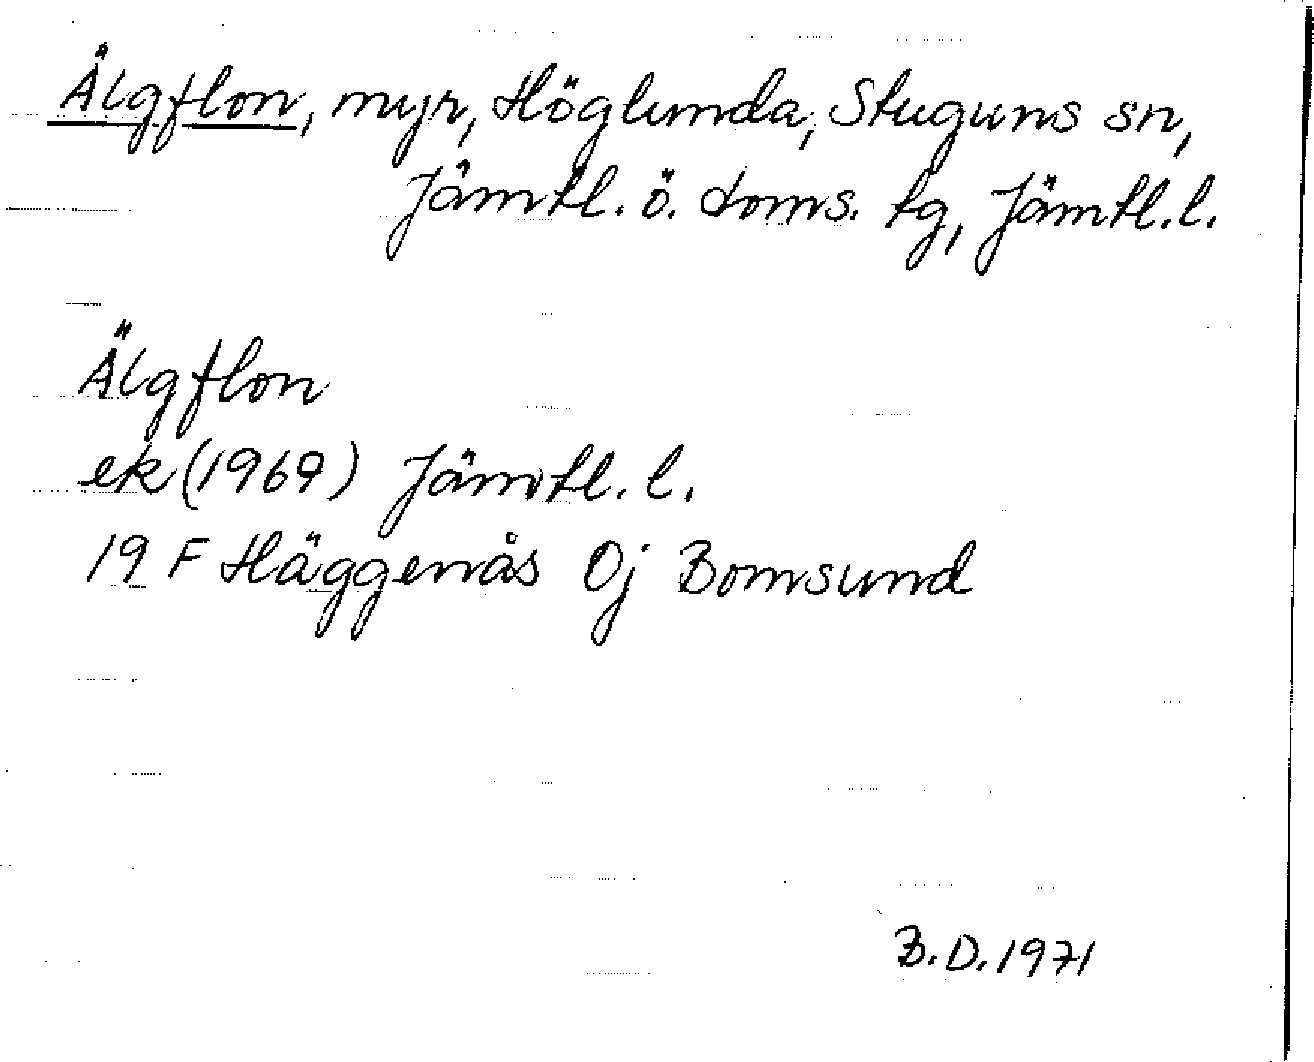 Älgflon, myr, Höglunda, Stuguns sn,
Jämtl. ö. doms. tg, Jämtl. l.
Älgflon
ek (1969) Jämtl. l.
19 F Häggenås 0j Bomsund
B.D. 1971